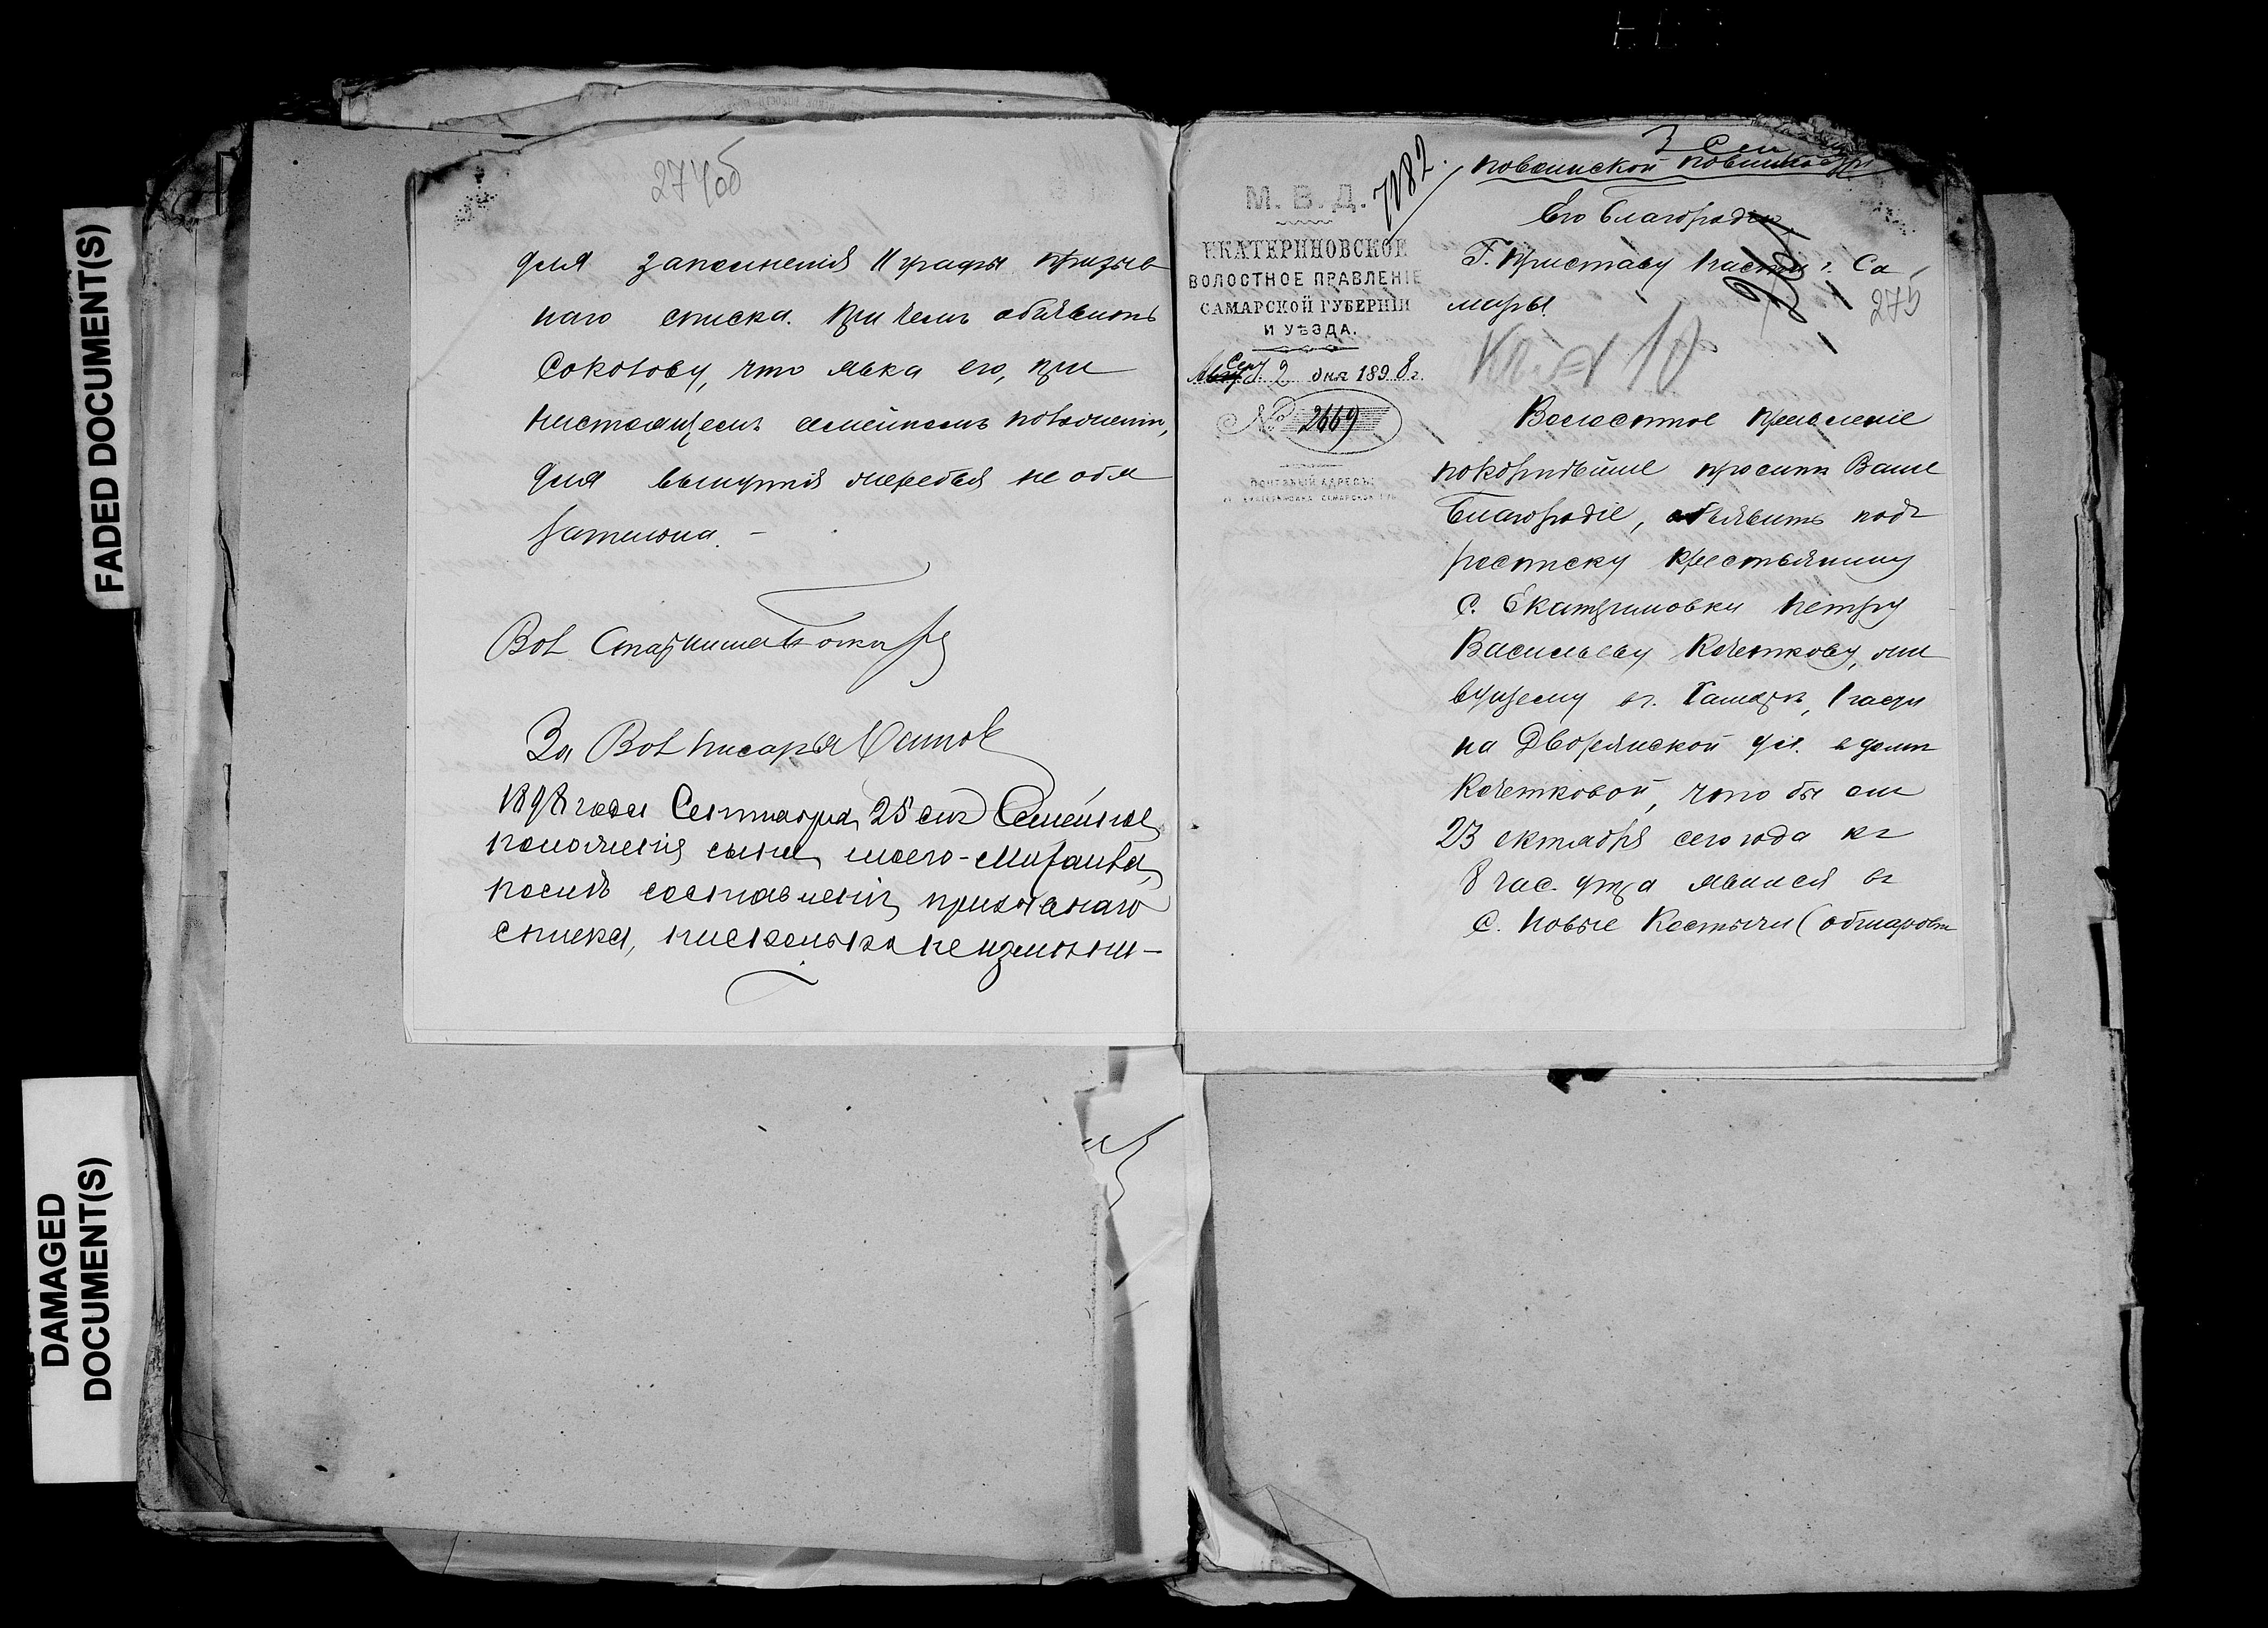 FADED DOCUMENT(S)
DAMAGED
DOCUMENT(S)
274об
для заполненія 11 графы призыв
наго списка. При чемъ объявить
Соколову, что явка его, при
настоящемъ семейномъ положеніи,
для вынутія жеребья не обя
зательна. —
Вол. Старшина
За Вол писаря
1898 года Сентября 25 дня Семейное
положенія сына моего - Михаила,
послѣ составленія призывнаго
списка, нисколько не измѣни-
7082.
3 Сен
повинской повинности
М. В. Д.
ЕКАТЕРИНОВСКОЕ
ВОЛОСТНОЕ ПРАВЛЕНІЕ
САМАРСКОЙ ГУБЕРНІИ
И УѢЗДА.
Сен. 2 дня 1898 г.
№ 2669
ПОЧТОВЫЙ АДРЕСЪ:
Его Благородію
Г. Приставу 1 части г. Са
мары.
275
Волостное Правленіе
покорнѣйше проситъ Ваше
Благородіе, объявить подъ
росписку крестьянину
С. Екатериновки Петру
Васильеву Кочеткову, жи
вущему въ г. Самарѣ, 1 части
на Дворянской ул. в домѣ
Кочетковой, что бы онъ
23 октября сего года къ
8 час. утра явился въ
С. Новые Костычи (обшаровк